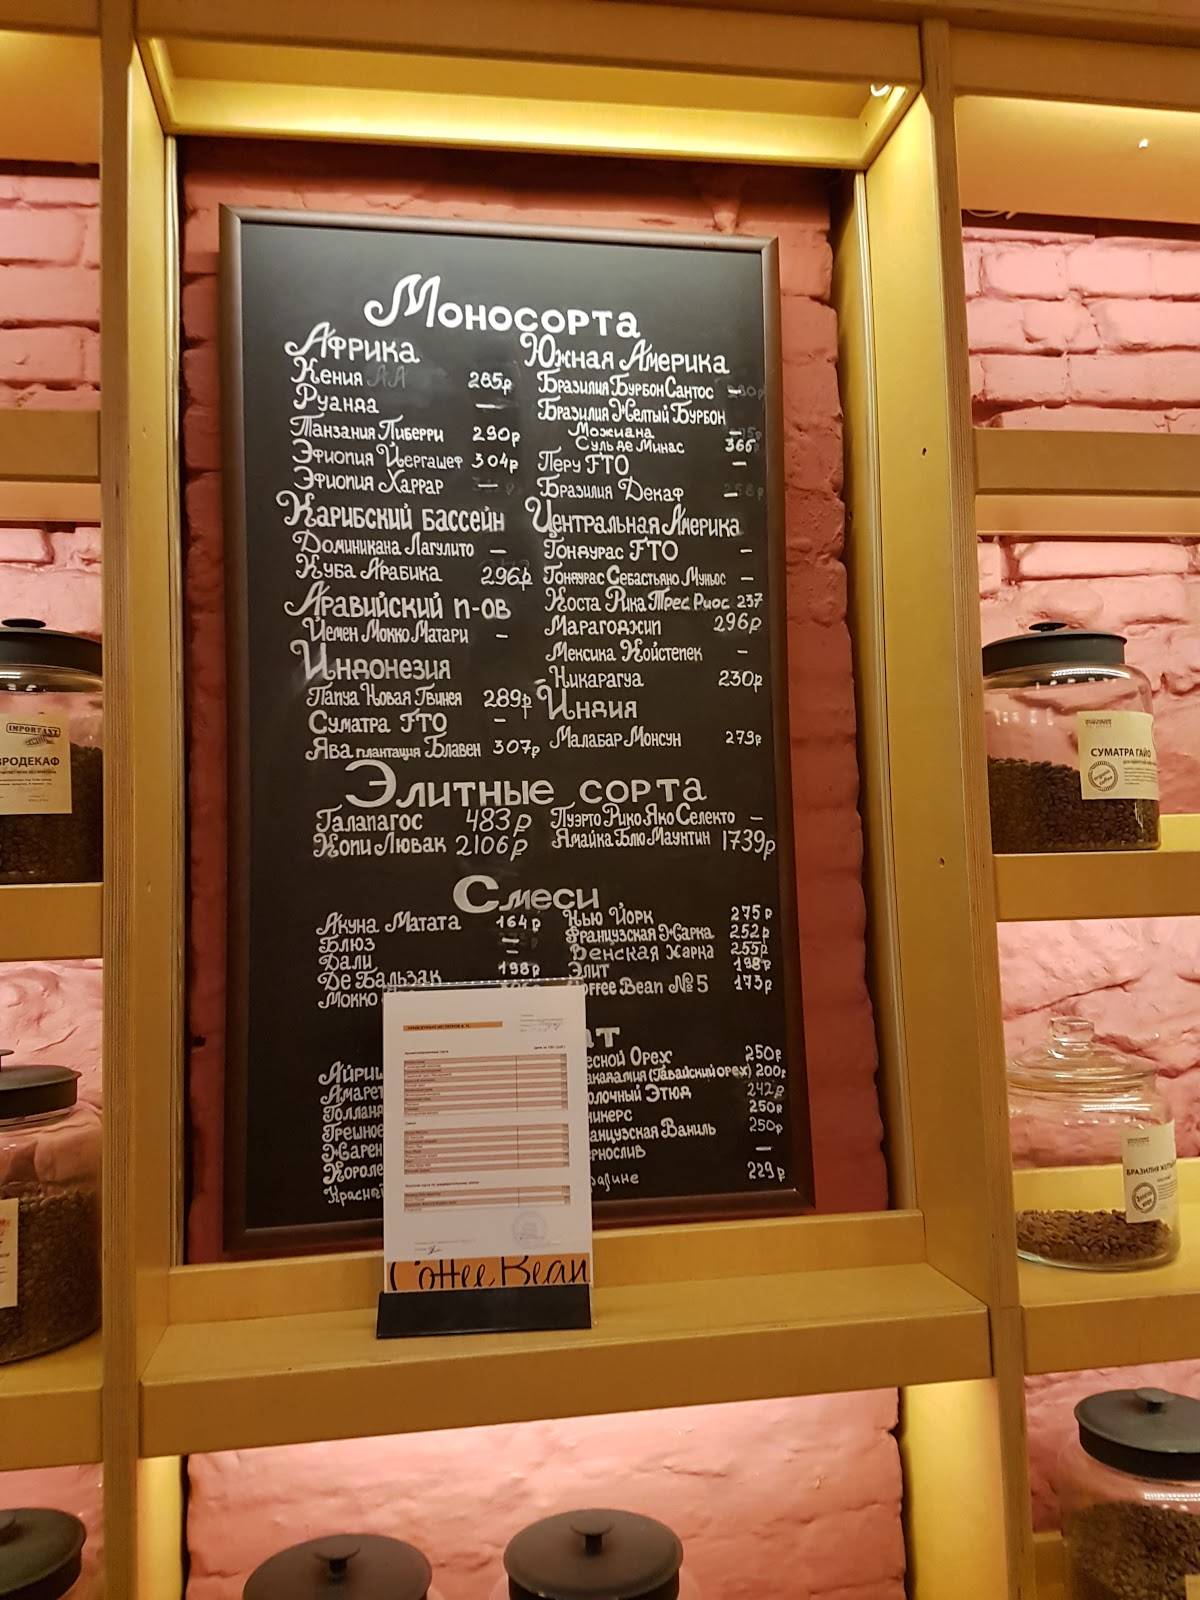 Моносорта
Африка
Кения АА 285р
Руанда —
Танзания Пиберри 290р
Эфиопия Йергашеф 304р
Эфиопия Харрар —
Карибский бассейн
Доминикана Лагулито —
Куба Арабика 296р
Аравийский п-ов
Йемен Мокко Матари -
Индонезия
Папуа Новая Гвинея 289р
Суматра FTO -
Ява плантация Блавен 307р
Южная Америка
Бразилия Бурбон Сантос —
Бразилия Желтый Бурбон
Можиана —
Суль де Минас 366р
Перу FTO —
Бразилия Декаф —
Центральная Америка
Гондурас FTO —
Гондурас Себастьяно Муньос —
Коста Рика Трес Риос 237
Марагоджип 296р
Мексика Койстепек —
Никарагуа 230р
Индия
Малабар Монсун 279р
Элитные сорта
Галапагос 483р
Копи Лювак 2106р
Пуэрто Рико Яко Селекто —
Ямайка Блю Маунтин 1739р
Смеси
Акуна Матата 164р
Блюз —
Дали -
Де Бальзак 198р
Мокко
Нью Йорк 275р
Французская Жарка 252р
Венская жарка 255р
Элит 198р
Coffee Bean №5 173р
ат
Айриш
Амарет
Голлан
Грешное
Жарен
Короле
Красны
есной Орех 250р
акадамия (Гавайский орех) 200г
олочный Этюд 242р
никерс 250р
анцузская Ваниль 250р
ернослив —
229р
Coffee Bean
IMPORTANT
ВРОДЕКАФ
СУМАТРА ГАЙО
organic coffee
БРАЗИЛИЯ ЖЕЛТЫ